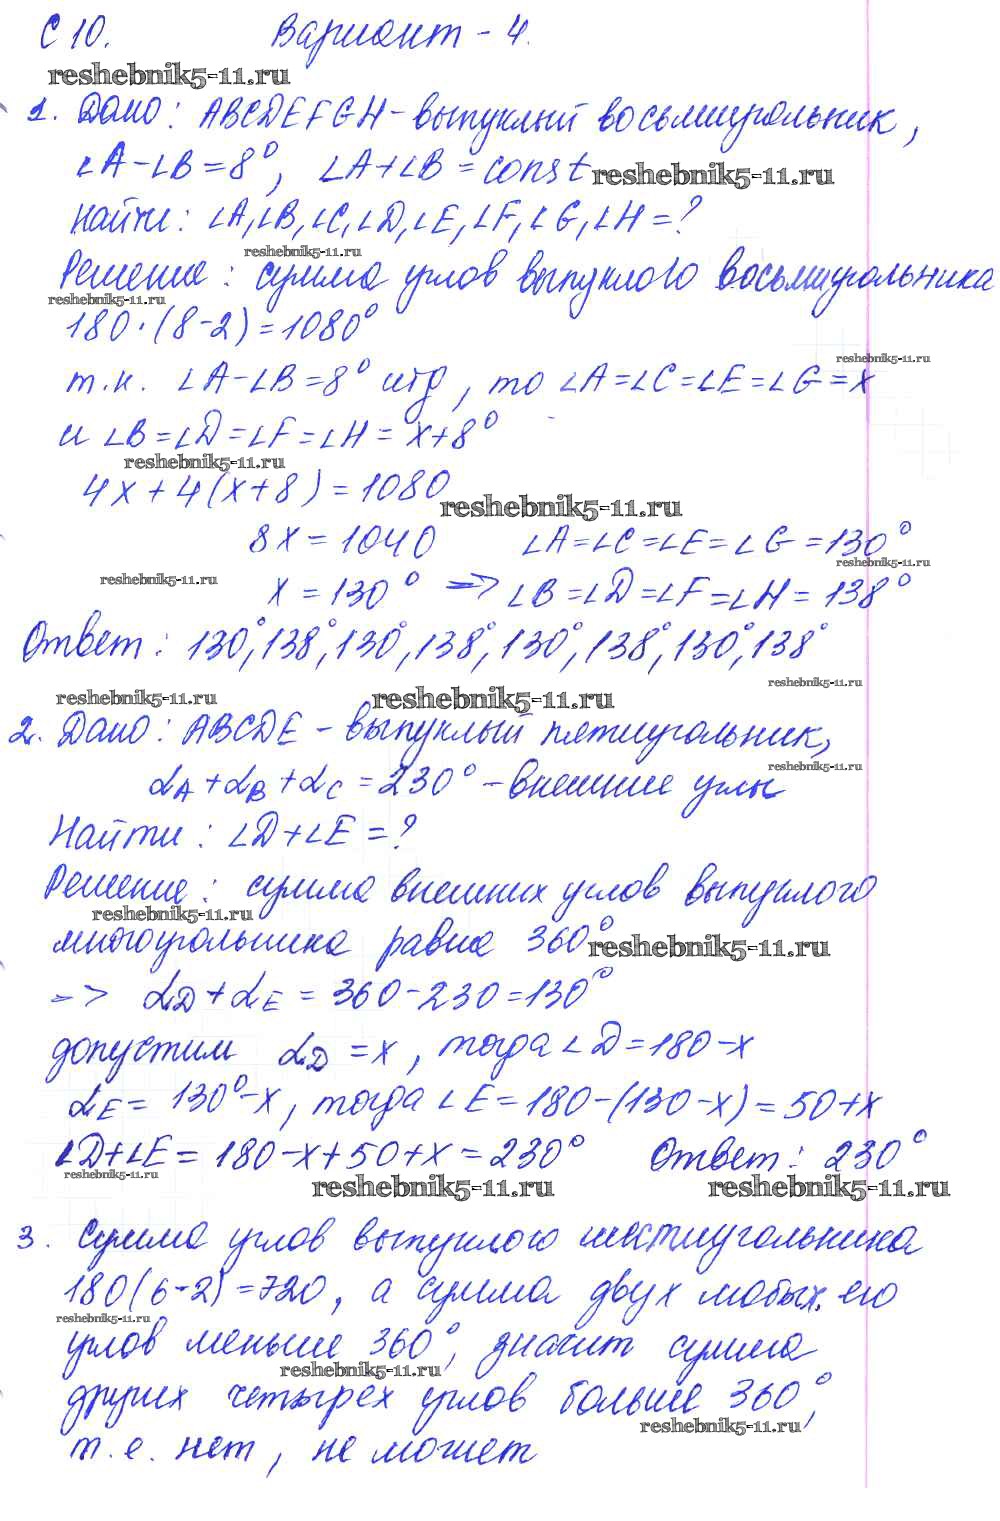 С 10. Вариант - 4.
reshebnik5-11.ru
1. Дано: ABCDEFGH - выпуклый восьмиугольник,
∠A - ∠B = 8°, ∠A + ∠B = const reshebnik5-11.ru
Найти: ∠A, ∠B, ∠C, ∠D, ∠E, ∠F, ∠G, ∠H = ?
reshebnik5-11.ru
Решение: сумма углов выпуклого восьмиугольника
reshebnik5-11.ru
180·(8-2) = 1080°
reshebnik5-11.ru
т.к. ∠A - ∠B = 8° итд, то ∠A = ∠C = ∠E = ∠G = x
и ∠B = ∠D = ∠F = ∠H = x + 8°
reshebnik5-11.ru
4x + 4(x+8) = 1080
reshebnik5-11.ru
8x = 1040 ∠A = ∠C = ∠E = ∠G = 130°
reshebnik5-11.ru
reshebnik5-11.ru
x = 130° => ∠B = ∠D = ∠F = ∠H = 138°
Ответ: 130°, 138°, 130°, 138°, 130°, 138°, 130°, 138°
reshebnik5-11.ru
reshebnik5-11.ru reshebnik5-11.ru
2. Дано: ABCDE - выпуклый пятиугольник,
reshebnik5-11.ru
∠A + ∠B + ∠C = 230° - внешние углы
Найти: ∠D + ∠E = ?
Решение: сумма внешних углов выпуклого
reshebnik5-11.ru
многоугольника равна 360° reshebnik5-11.ru
=> ∠D + ∠E = 360 - 230 = 130°
допустим ∠D = x, тогда ∠D = 180 - x
∠E = 130° - x, тогда ∠E = 180 - (130 - x) = 50 + x
∠D + ∠E = 180 - x + 50 + x = 230° Ответ: 230°
reshebnik5-11.ru
reshebnik5-11.ru reshebnik5-11.ru
3. Сумма углов выпуклого шестиугольника
180(6-2) = 720, а сумма двух любых его
reshebnik5-11.ru
углов меньше 360°, значит сумма
reshebnik5-11.ru
других четырех углов больше 360°,
reshebnik5-11.ru
т.е. нет, не может